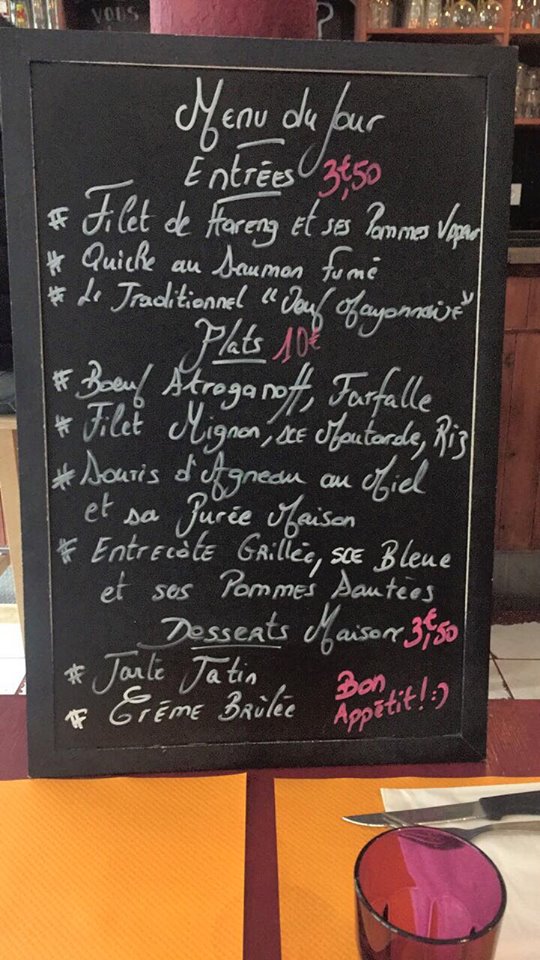 VOUS
?
Menu du Jour
Entrées 3€,50
# Filet de Hareng et ses Pommes Vapeur
# Quiche au Saumon fumé
# Le Traditionnel "Oeuf Mayonnaise"
Plats 10€
# Boeuf Stroganoff, Farfalle
# Filet Mignon, sce Moutarde, Riz
# Souris d'Agneau au Miel
et sa Purée Maison
# Entrecôte Grillée, sce Bleue
et ses Pommes Sautées
Desserts Maison 3€,50
# Tarte Tatin
# Crème Brûlée
Bon
Appétit! :)